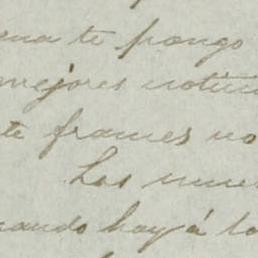 ena te pongo
mejores notici
te frances no
Los mue
uando hay á lo